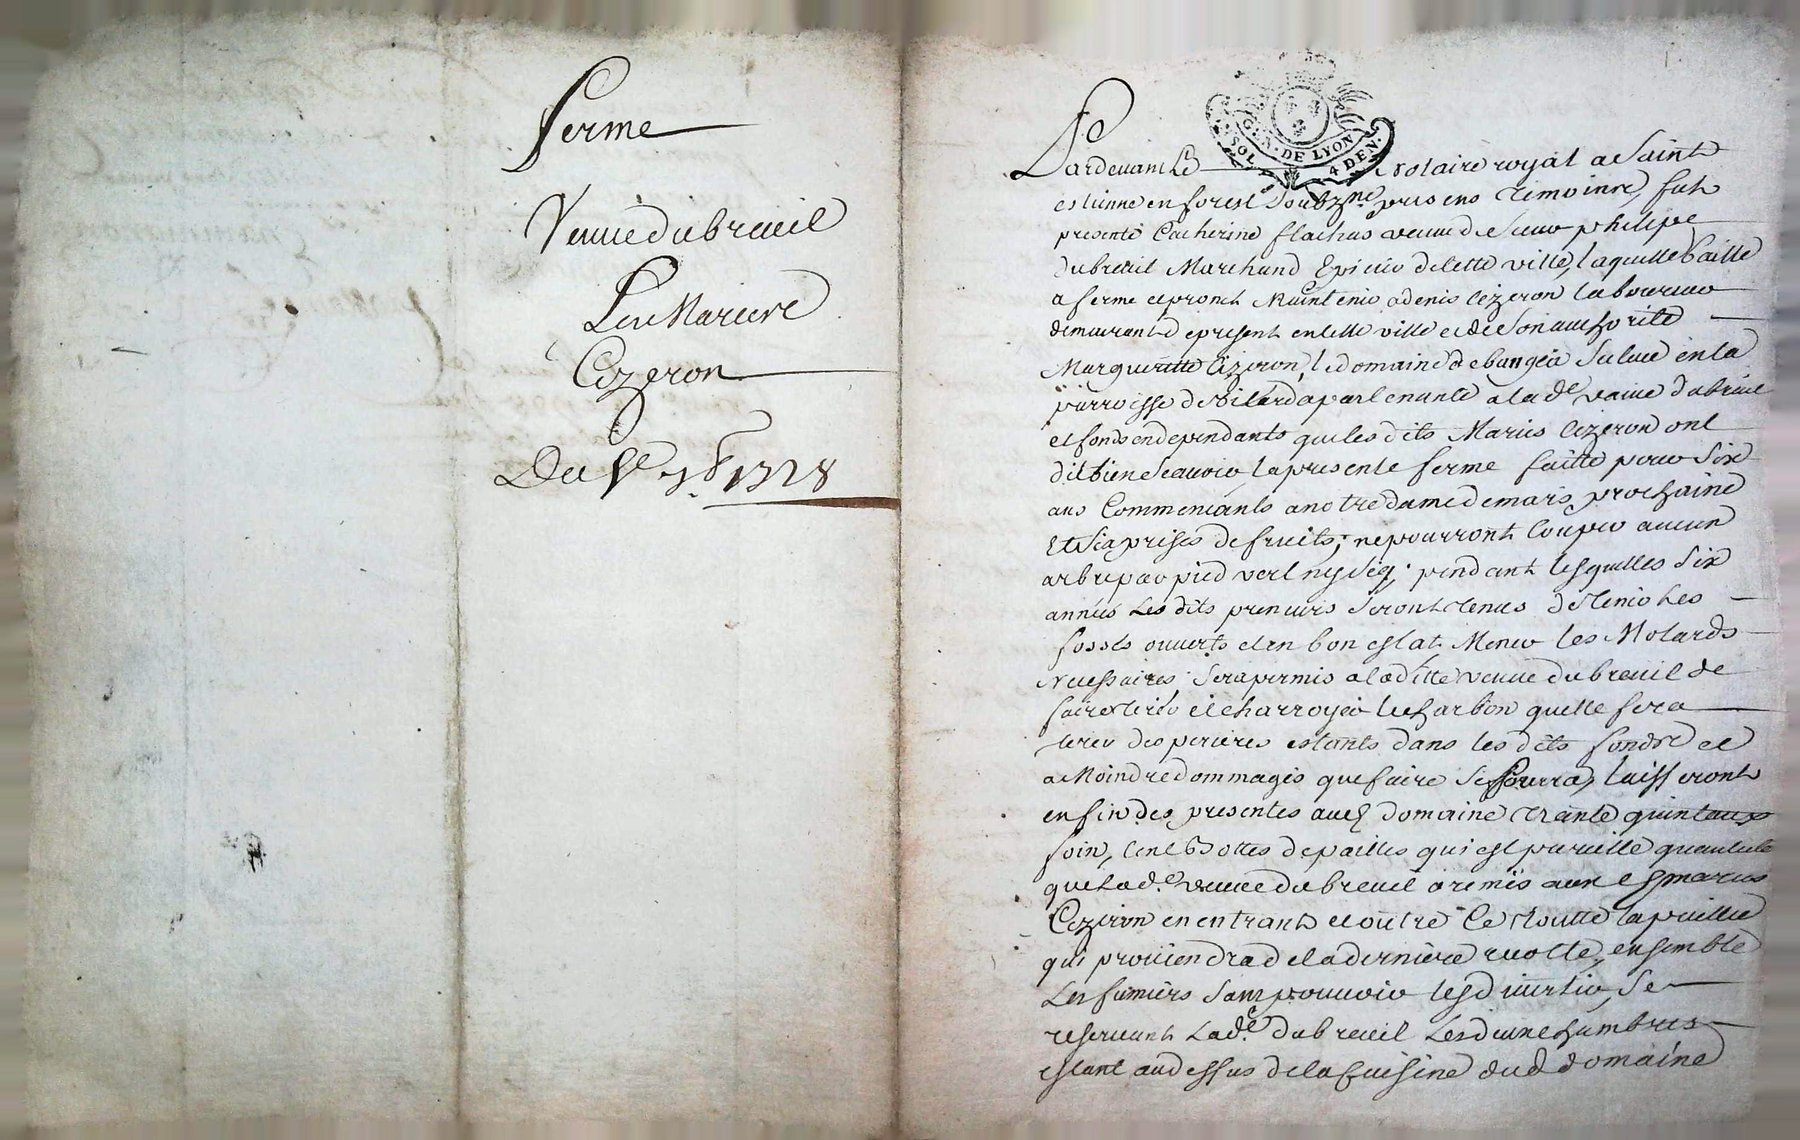 Ferme
Veuve dubreuil
Les Mariere
Cizeron
Du 1728
GEN. DE LYON
SOL 4 DEN.
Pardevant Le Notaire royal a Saint
estienne en forest soubz.ne presens temoins, fut
presente Catherine flachas veuve de sieur philipe
dubreüil Marchand Epicier de cette ville, laquelle baille
a ferme et promet Maintenir a denis Cizeron laboureur
demeurant a present en cette ville et de son authorité
Margueritte Cizeron, le domaine de bangea scitué en la
parroisse de Vilard apartenante a la d.e vaive dubreuil
et fonds en dependants que les dits Mariés Cizeron ont
dit bien scavoir, la presente ferme faitte pour six
ans Commencants a notre dame de mars prochaine
Et six prises de fruits; ne pourront couper aucun
arbre par pied vert ny seq; pendant lesquelles six
années Les dits preneurs seront tenus de tenir les
fossés ouverts et en bon estat Mener les Molards
Necessaires; sera permis a la ditte veuve dubreuil de
faire tirér et charroyér le charbon quelle fera
tirer des perieres estants dans les dits fonds et
a Moindre dommages que faire se pourra, laisseront
en fin des presentes aud domaine trante quintaux
foin, cent bottes de pailles qui est pareille quantité
que la d.e veuve dubreuil a remis aux mariés
Cizeron en entrant et outre Ce toutte la paille
qui proviendra de la derniere recolte, ensemble
Les fumiers sans pouvoir les divertir, se
reservant La de. dubreuil Les deux chambres
estant au dessus de la Cuisine dud domaine